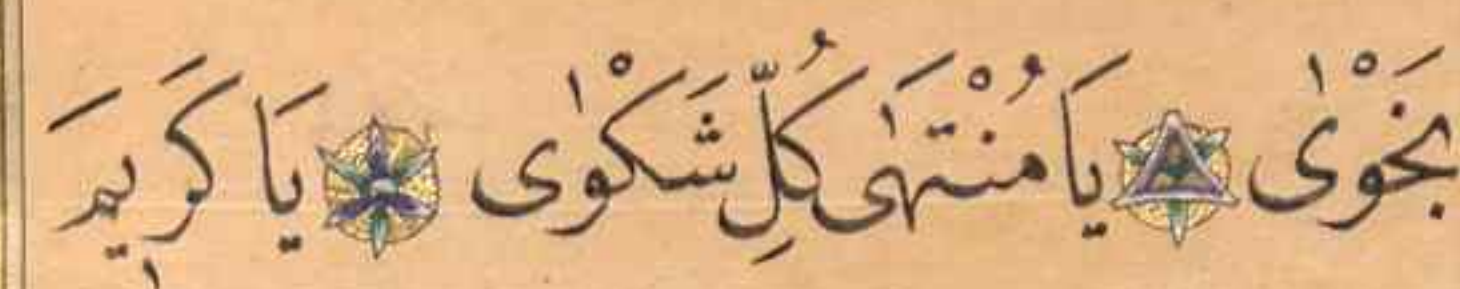 نَجْوٰى يَا مُنْتَهٰى كُلِّ شَكْوٰى يَا كَرِيمَ